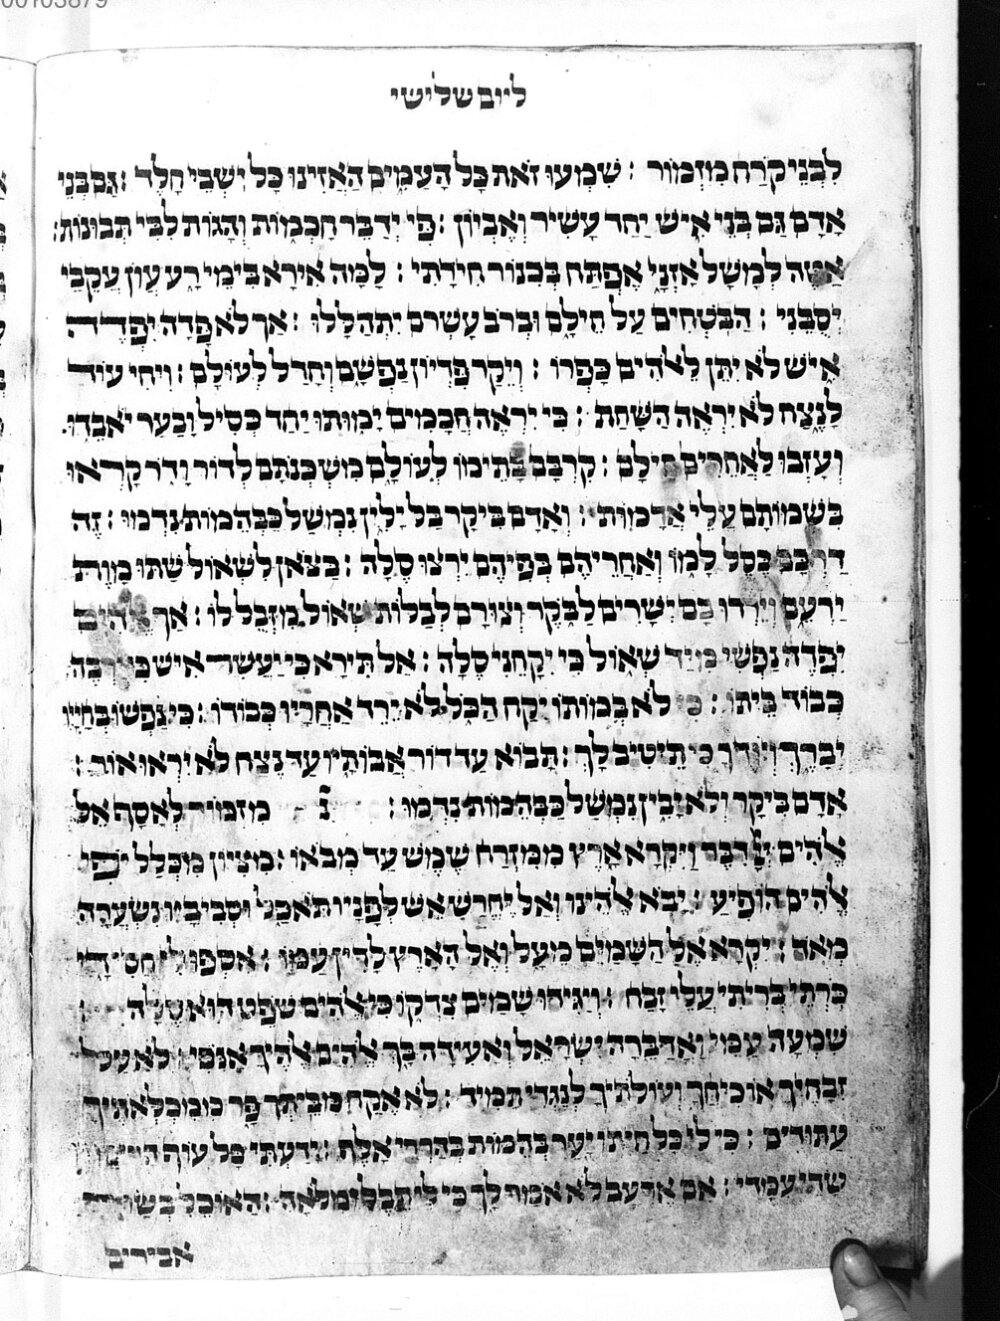 00103879
ליום שלישי
לִבְנֵי קֹרַח מִזְמוֹר : שִׁמְעוּ זֹאת כָּל הָעַמִּים הַאֲזִינוּ כָּל יֹשְׁבֵי חָלֶד : גַּם בְּנֵי
אָדָם גַּם בְּנֵי אִישׁ יַחַד עָשִׁיר וְאֶבְיוֹן : פִּי יְדַבֵּר חָכְמוֹת וְהָגוּת לִבִּי תְבוּנוֹת :
אַטֶּה לְמָשָׁל אָזְנִי אֶפְתַּח בְּכִנּוֹר חִידָתִי : לָמָּה אִירָא בִּימֵי רָע עֲוֹן עֲקֵבַי
יְסֻבֵּנִי : הַבֹּטְחִים עַל חֵילָם וּבְרֹב עָשְׁרָם יִתְהַלָּלוּ : אָךְ לֹא פָדֹה יִפְדֶּה
אִישׁ לֹא יִתֵּן לֵאלֹהִים כָּפְרוֹ : וְיֵקַר פִּדְיוֹן נַפְשָׁם וְחָדַל לְעוֹלָם : וִיחִי עוֹד
לָנֶצַח לֹא יִרְאֶה הַשָּׁחַת : כִּי יִרְאֶה חֲכָמִים יָמוּתוּ יַחַד כְּסִיל וָבַעַר יֹאבֵדוּ
וְעָזְבוּ לַאֲחֵרִים חֵילָם : קִרְבָּם בָּתֵּימוֹ לְעוֹלָם מִשְׁכְּנֹתָם לְדוֹר וָדֹר קָרְאוּ
בִשְׁמוֹתָם עֲלֵי אֲדָמוֹת : וְאָדָם בִּיקָר בַּל יָלִין נִמְשַׁל כַּבְּהֵמוֹת נִדְמוּ : זֶה
דַרְכָּם כֵּסֶל לָמוֹ וְאַחֲרֵיהֶם בְּפִיהֶם יִרְצוּ סֶלָה : כַּצֹּאן לִשְׁאוֹל שַׁתּוּ מָוֶת
יִרְעֵם וַיִּרְדּוּ בָם יְשָׁרִים לַבֹּקֶר וְצוּרָם לְבַלּוֹת שְׁאוֹל מִזְּבֻל לוֹ : אַךְ אֱלֹהִים
יִפְדֶּה נַפְשִׁי מִיַּד שְׁאוֹל כִּי יִקָּחֵנִי סֶלָה : אַל תִּירָא כִּי יַעֲשִׁר אִישׁ כִּי יִרְבֶּה
כְּבוֹד בֵּיתוֹ : כִּי לֹא בְמוֹתוֹ יִקַּח הַכֹּל לֹא יֵרֵד אַחֲרָיו כְּבוֹדוֹ : כִּי נַפְשׁוֹ בְּחַיָּיו
יְבָרֵךְ וְיוֹדֻךָ כִּי תֵיטִיב לָךְ : תָּבוֹא עַד דּוֹר אֲבוֹתָיו עַד נֵצַח לֹא יִרְאוּ אוֹר :
אָדָם בִּיקָר וְלֹא יָבִין נִמְשַׁל כַּבְּהֵמוֹת נִדְמוּ : נ מִזְמוֹר לְאָסָף אֵל
אֱלֹהִים יְיָ דִּבֶּר וַיִּקְרָא אָרֶץ מִמִּזְרַח שֶׁמֶשׁ עַד מְבֹאוֹ : מִצִּיּוֹן מִכְלַל יֹפִי
אֱלֹהִים הוֹפִיעַ : יָבֹא אֱלֹהֵינוּ וְאַל יֶחֱרַשׁ אֵשׁ לְפָנָיו תֹּאכֵל וּסְבִיבָיו נִשְׂעֲרָה
מְאֹד : יִקְרָא אֶל הַשָּׁמַיִם מֵעָל וְאֶל הָאָרֶץ לָדִין עַמּוֹ : אִסְפוּ לִי חֲסִידָי
כֹּרְתֵי בְרִיתִי עֲלֵי זָבַח : וַיַּגִּידוּ שָׁמַיִם צִדְקוֹ כִּי אֱלֹהִים שֹׁפֵט הוּא סֶלָה :
שִׁמְעָה עַמִּי וַאֲדַבֵּרָה יִשְׂרָאֵל וְאָעִידָה בָּךְ אֱלֹהִים אֱלֹהֶיךָ אָנֹכִי : לֹא עַל
זְבָחֶיךָ אוֹכִיחֶךָ וְעוֹלֹתֶיךָ לְנֶגְדִּי תָמִיד : לֹא אֶקַּח מִבֵּיתְךָ פָר מִמִּכְלְאֹתֶיךָ
עַתּוּדִים : כִּי לִי כָל חַיְתוֹ יָעַר בְּהֵמוֹת בְּהַרְרֵי אָלֶף : יָדַעְתִּי כָּל עוֹף הָרִים וְזִיז
שָׂדַי עִמָּדִי : אִם אֶרְעַב לֹא אֹמַר לָךְ כִּי לִי תֵבֵל וּמְלֹאָהּ : הַאוֹכַל בְּשַׂר
אבירים